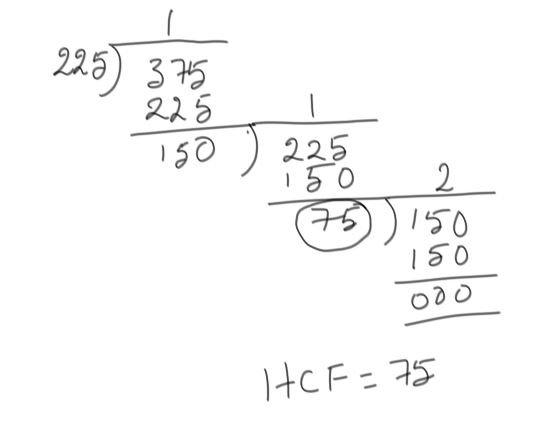 1
225) 375
225 1
150 ) 225
150 2
75 ) 150
150
000
HCF = 75